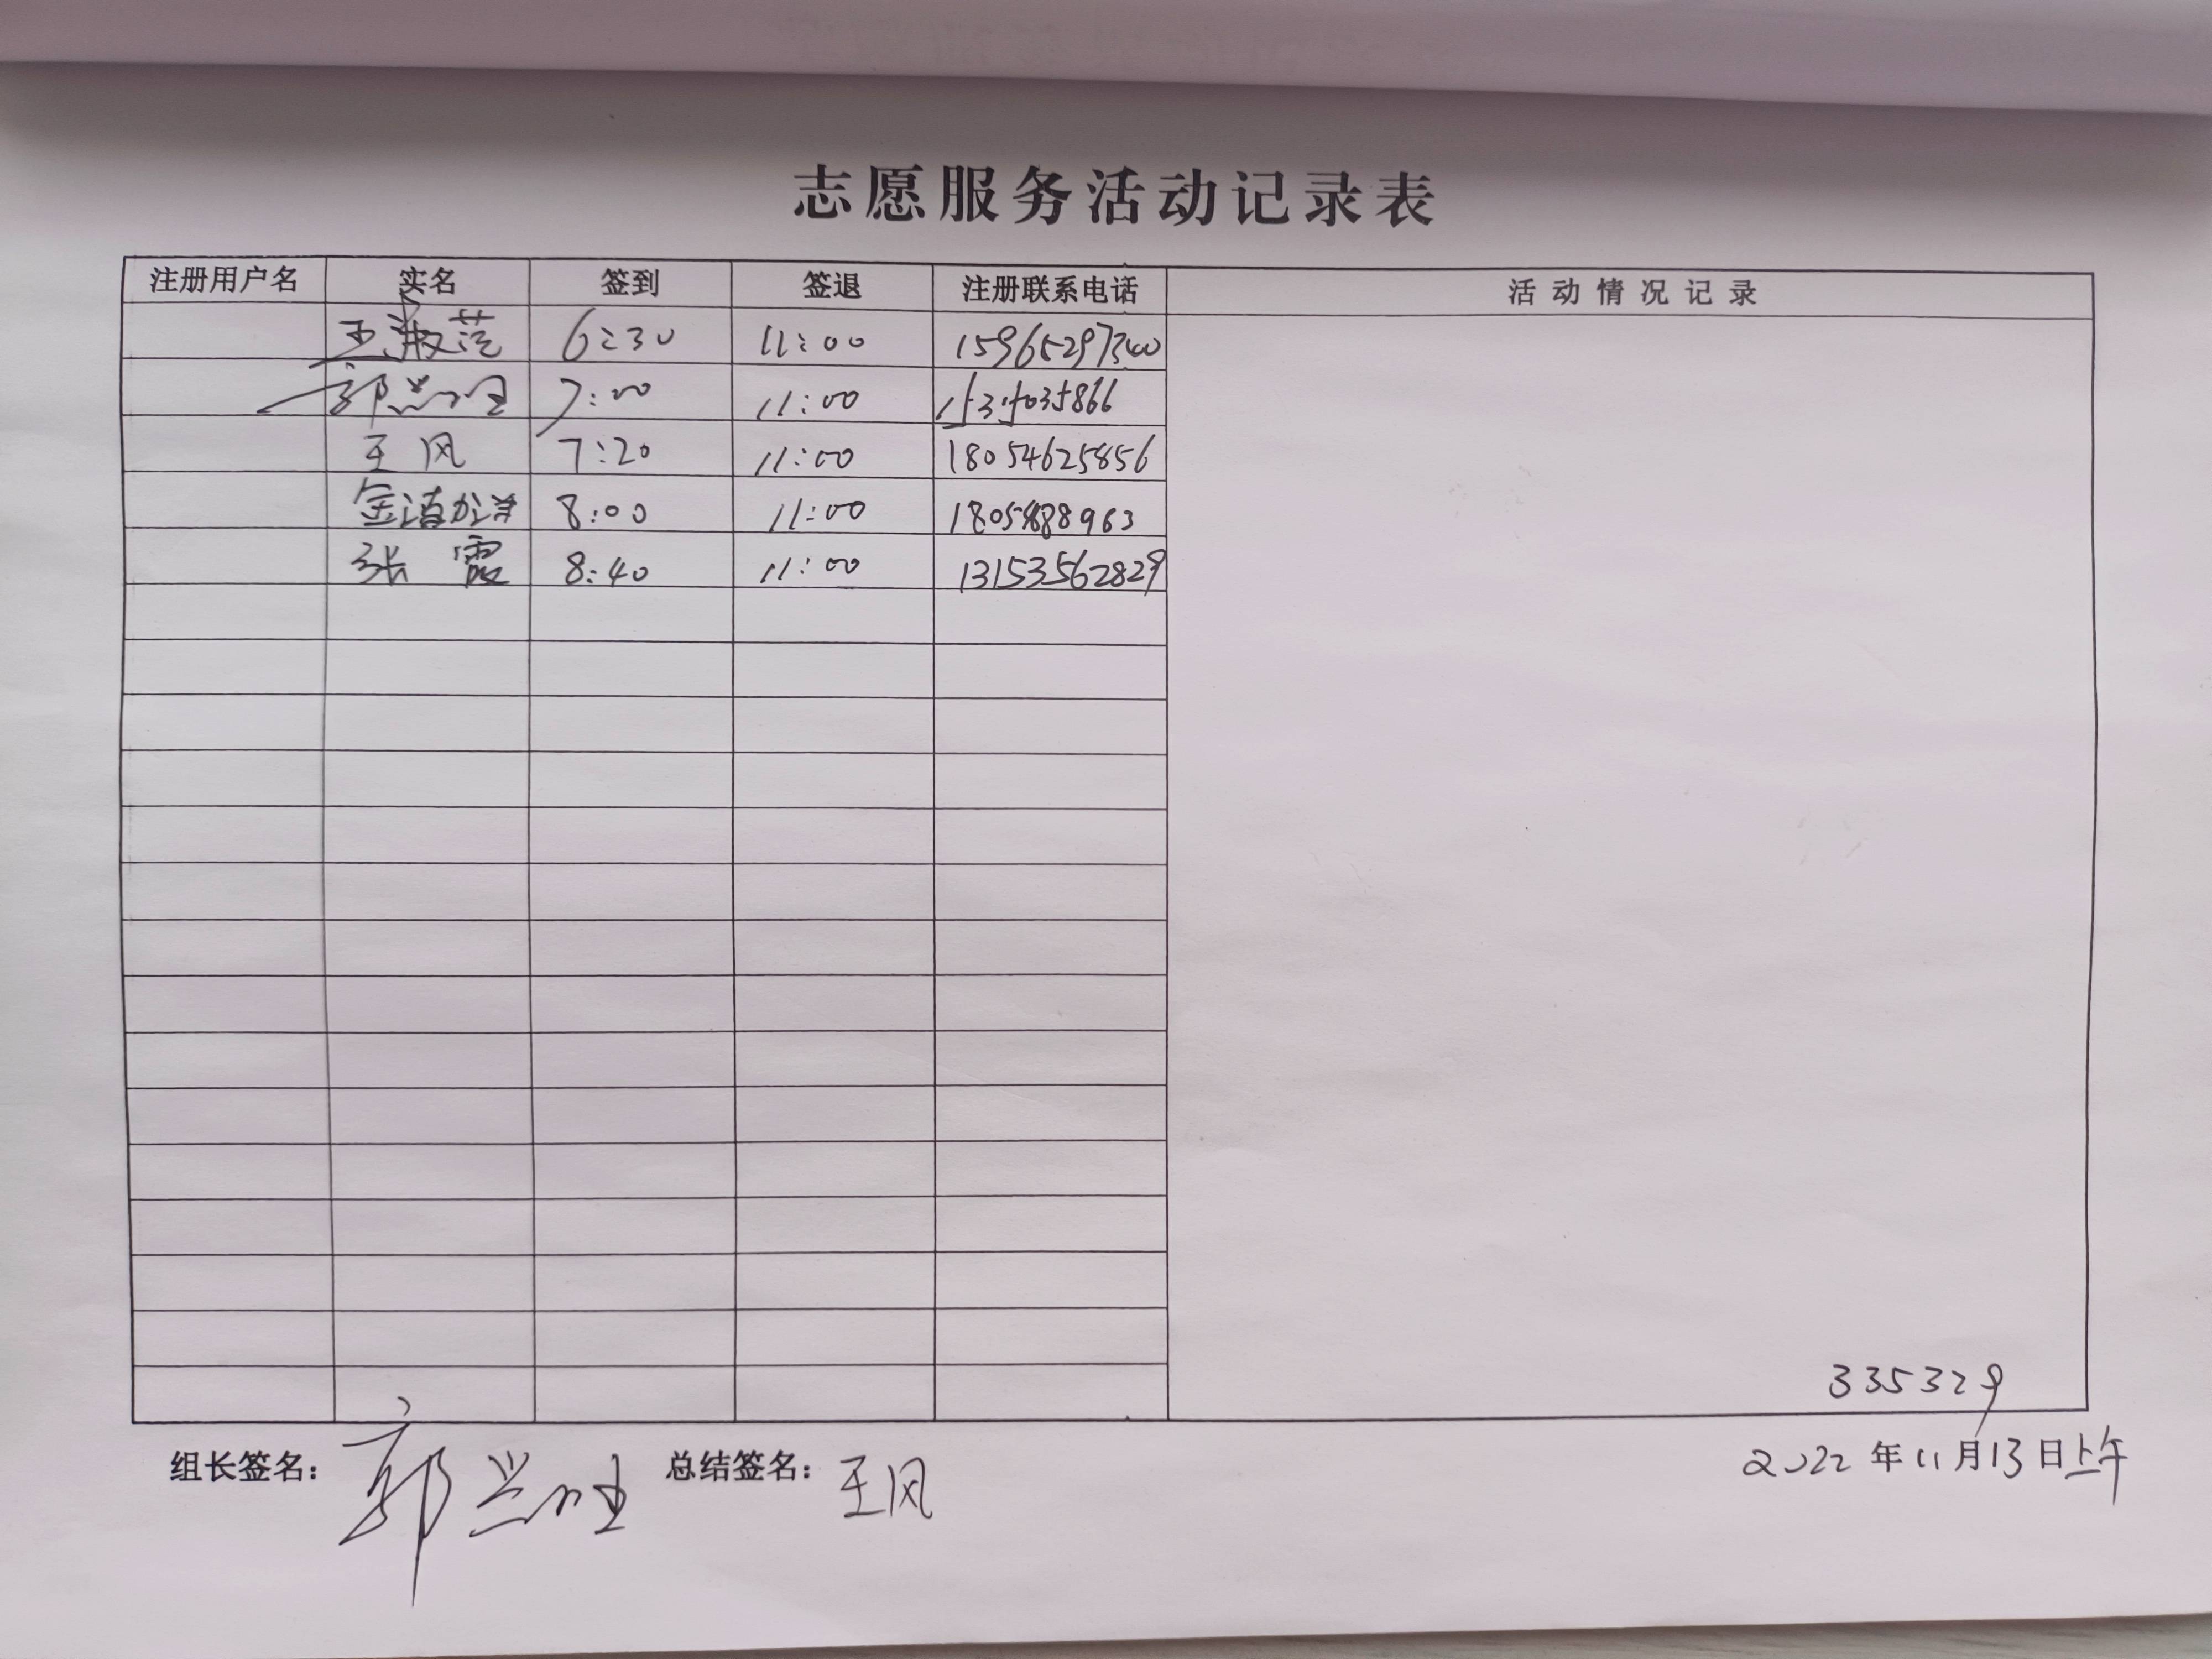 志愿服务活动记录表
注册用户名 实名 签到 签退 注册联系电话 活动情况记录
王淑范 6:30 11:00 15965297340
郭兴 7:00 11:00
王风 7:20 11:00 18054625856
金 8:00 11:00
张霞 8:40 11:00 13153562829
335329
组长签名: 郭兴 总结签名: 王风 2022年11月13日上午